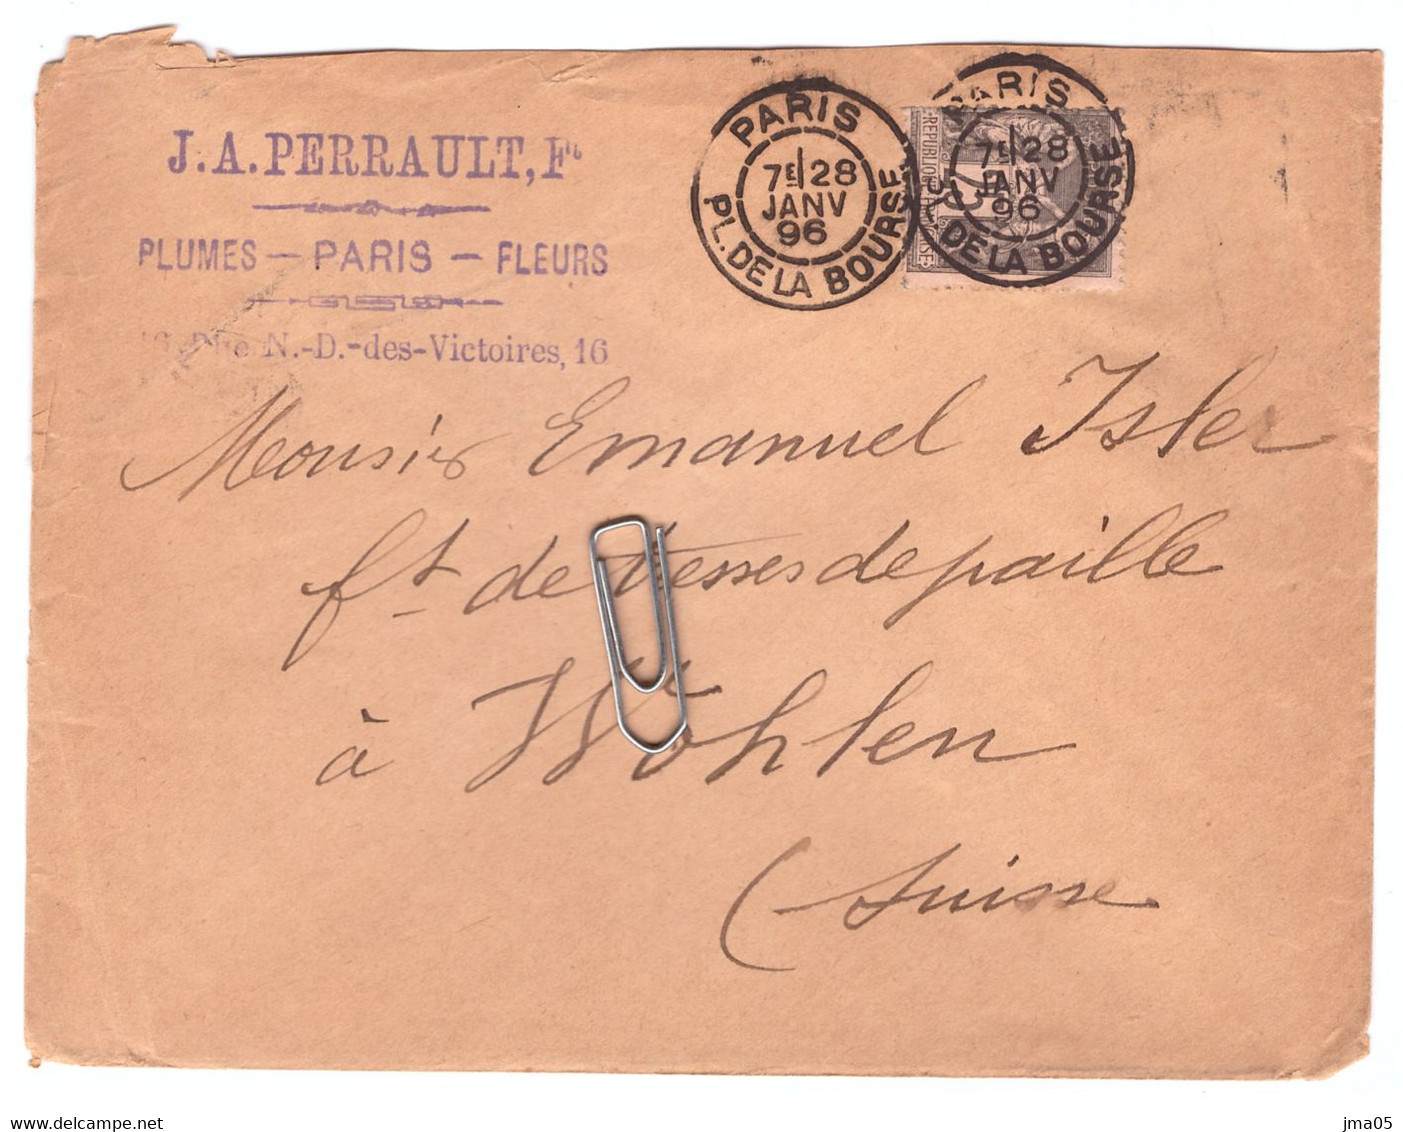 J.A.PERRAULT, Ft
PLUMES — PARIS — FLEURS
16, Rue N.-D.-des-Victoires, 16
PARIS
7E 28
JANV
96
PL. DE LA BOURSE
PARIS
7E 28
JANV
96
PL. DE LA BOURSE
REPUBLIQUE FRANÇAISE
Monsier Emanuel Isler
ft de tresses de paille
à Wöhlen
(Suisse
delcampe.net
jma05